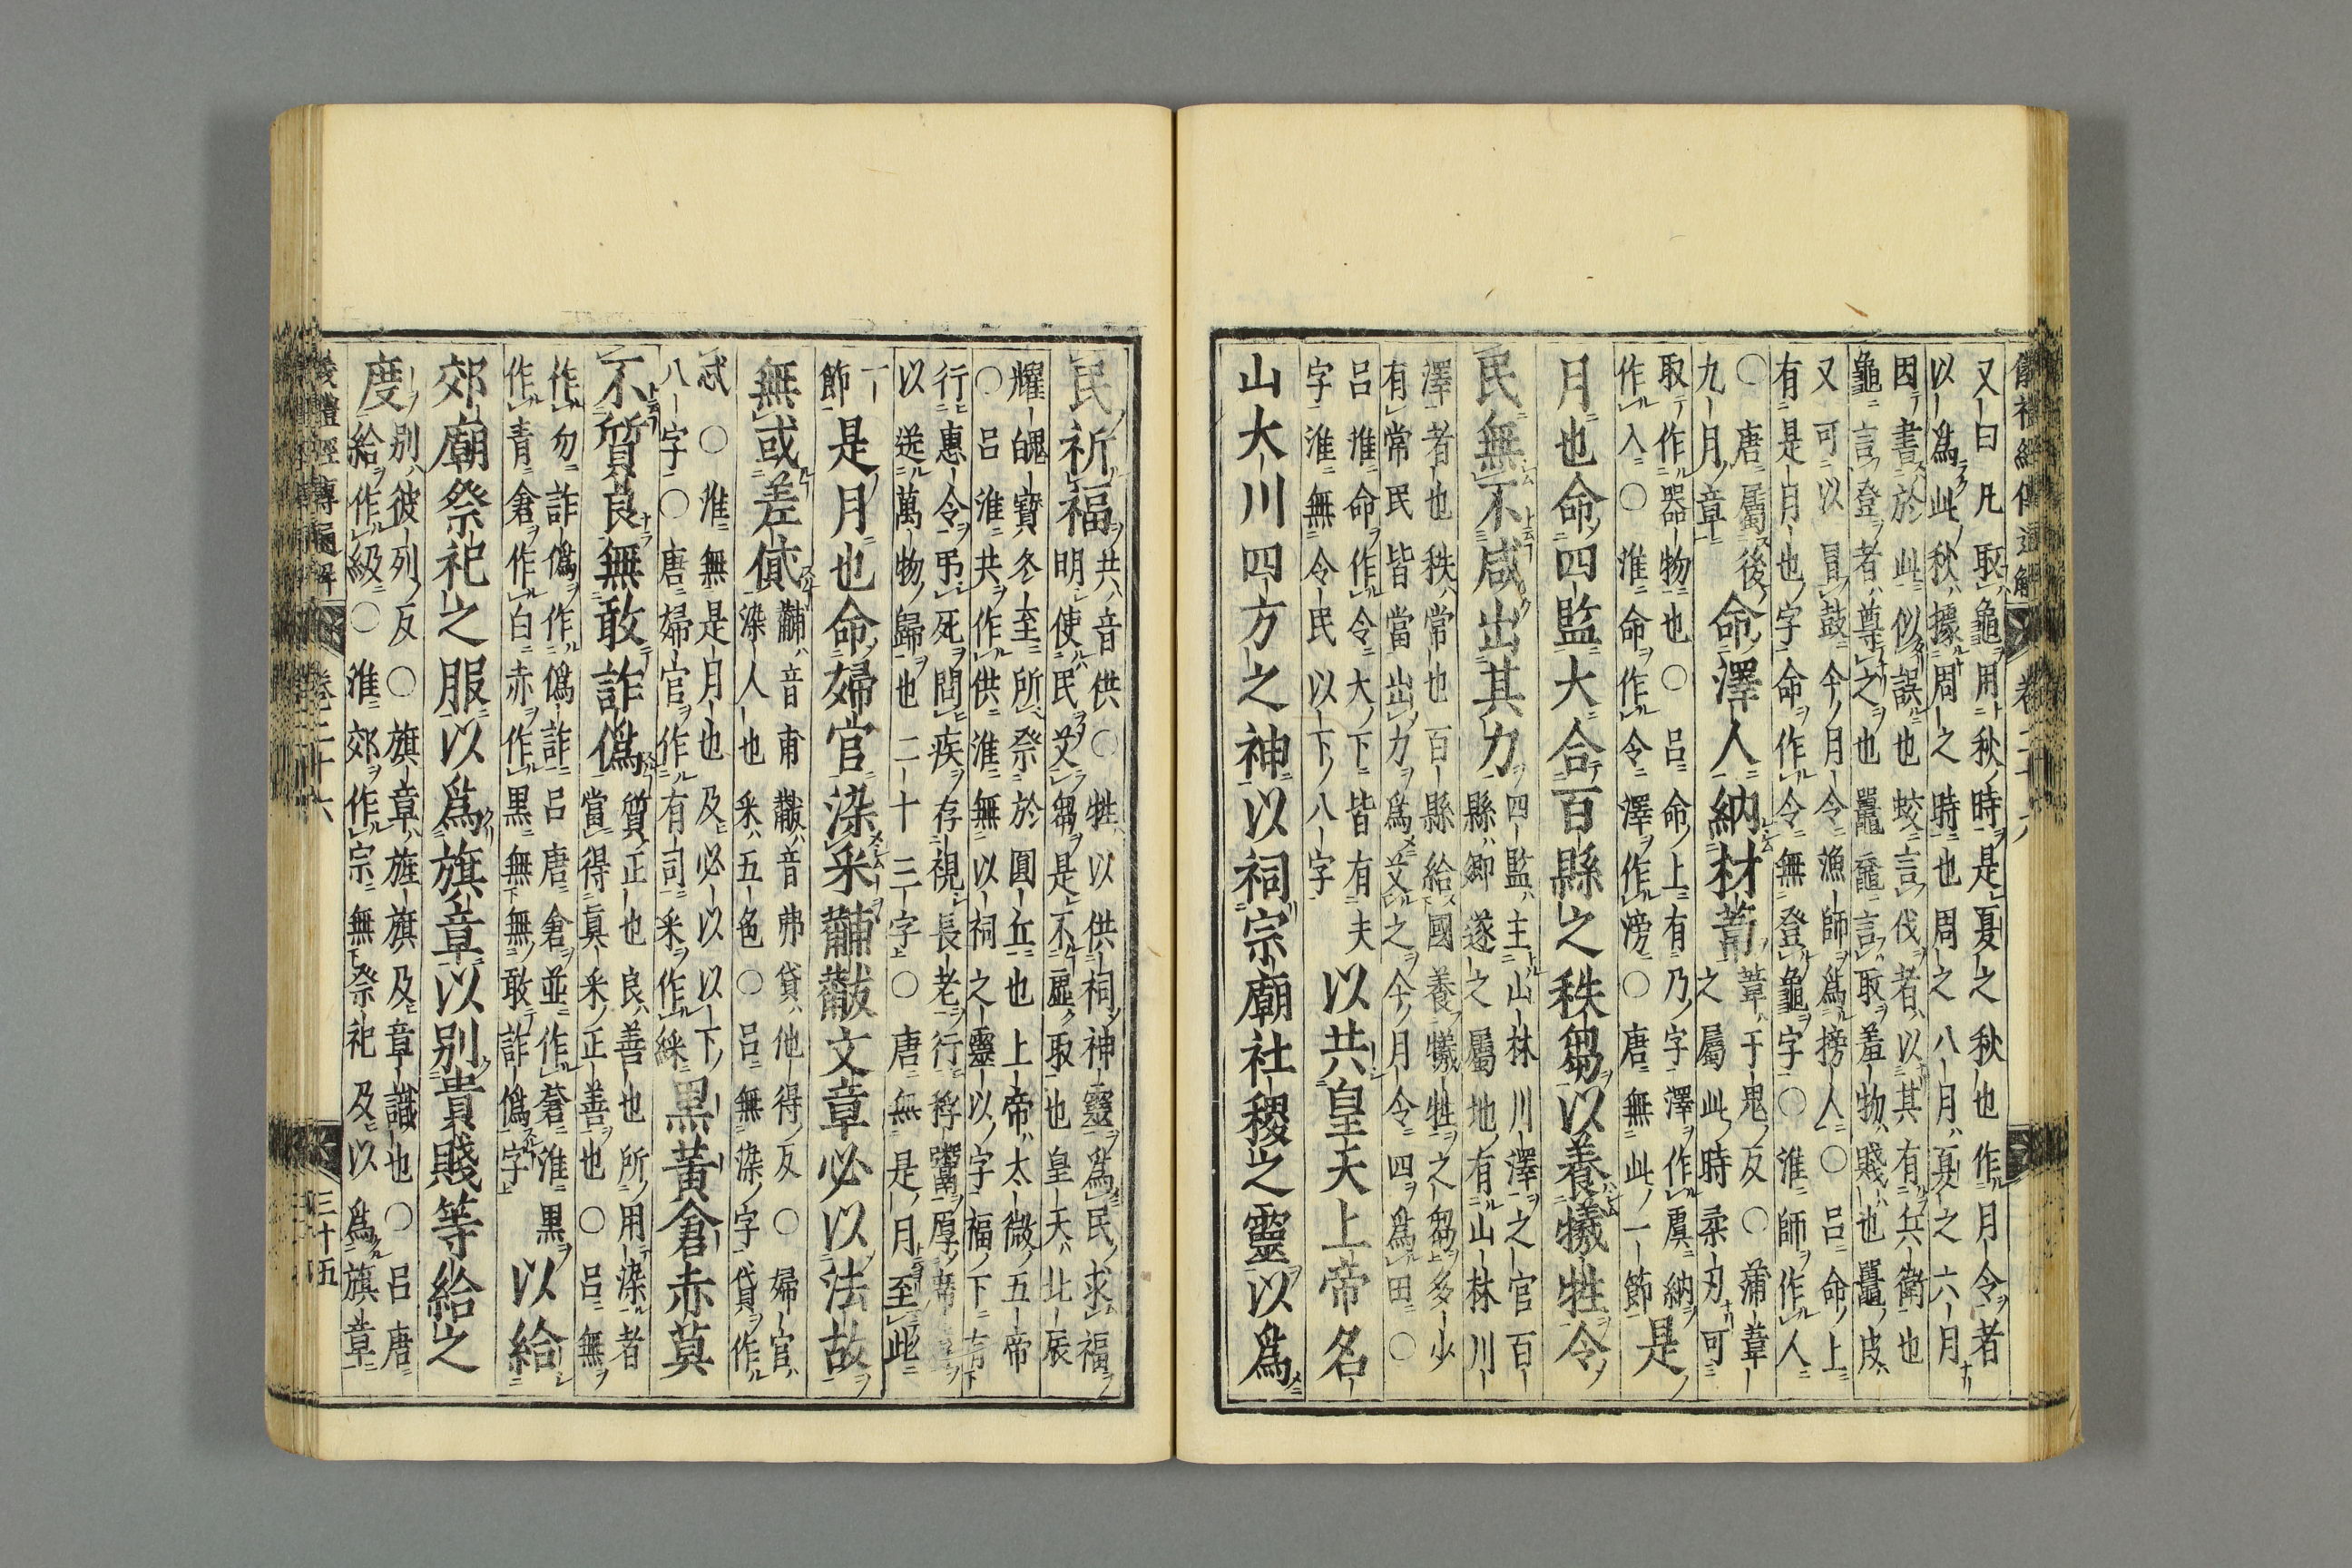 又曰凡取龜用秋時是夏之秋也作月令者
以爲此秋據周之時也周之八月夏之六月
因書於此似誤也蛟言伐者以其有兵衛也
龜言登者尊之也鼉黿言取羞物賤也鼉皮
又可以冒鼓今月令漁師爲榜人○呂命上
有是月也字命作令無登龜字○淮師作人
○唐屬後
九月章
命澤人納材葦
葦于鬼反○蒲葦
之屬此時柔刃可
取作器物也○呂命上有乃字澤作虞納
作入○淮命作令澤作滂○唐無此一節
是
月也命四監大合百縣之秩芻以養犧牲令
民無不咸出其力
四監主山林川澤之官百
縣鄉遂之屬地有山林川
澤者也秩常也百縣給國養犧牲之芻多少
有常民皆當出力爲艾之今月令四爲田○
呂淮命作令大下皆有夫
字淮無令民以下八字
以共皇天上帝名
山大川四方之神以祠宗廟社稷之靈以爲
民祈福
共音供○牲以供祠神靈爲民求福
明使民艾芻是不虛取也皇天北辰
耀魄寶冬至所祭於圓丘也上帝太微五帝
○呂淮共作供淮無以祠之靈以字福下有
行惠令弔死問疾存視長老行稃鬻厚席蓐
以送萬物歸也二十三字○唐無是月至此
一
節
是月也命婦官染采黼黻文章必以法故
無或差貸
黼音甫黻音弗貸他得反○婦官
染人也采五色○呂無染字貸作
忒○淮無是月也及必以以下
八字○唐婦官作有司采作綵
黑黃倉赤莫
不質良無敢詐僞
質正也良善也所用染者
當得眞采正善也○呂無
作勿詐僞作僞詐呂唐倉並作蒼淮黑
作青倉作白赤作黑無下無敢詐僞字
以給
郊廟祭祀之服以爲旗章以別貴賤等給之
度
別彼列反○旗章旌旗及章識也○呂唐
給作級○淮郊作宗無下祭祀及以爲旗章
卷二十六
三十五